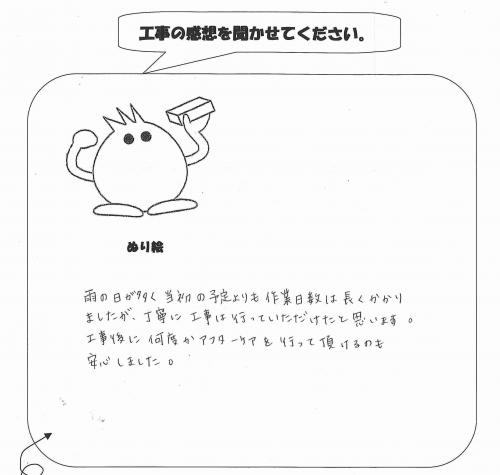 工事の感想を聞かせてください。
ぬり絵
雨の日が多く当初の予定よりも作業日数は長くかかり
ましたが、丁寧に工事は行っていただけたと思います。
工事後に何度かアフターケアを行って頂けるのも
安心しました。